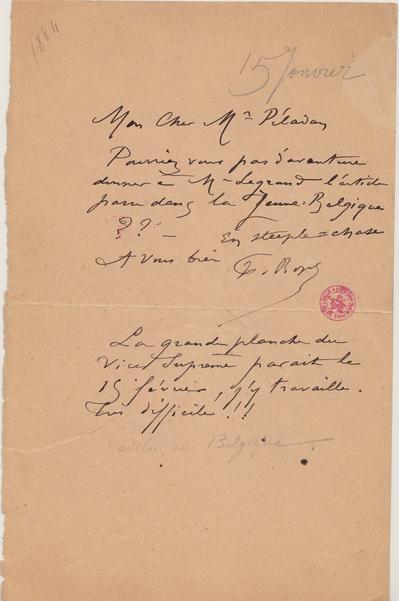 1884
15 Janvier
Mon Cher Mr Péladan
Pourriez vous pas d'aventure
donner à Mr Legrand l'article
paru dans la Jeune-Belgique
?? — En steeple=chase
A vous bien F. Rops
La grande planche du
Vice Suprême parait le
15 février, j'y travaille.
Très difficile !!!
en Belgique